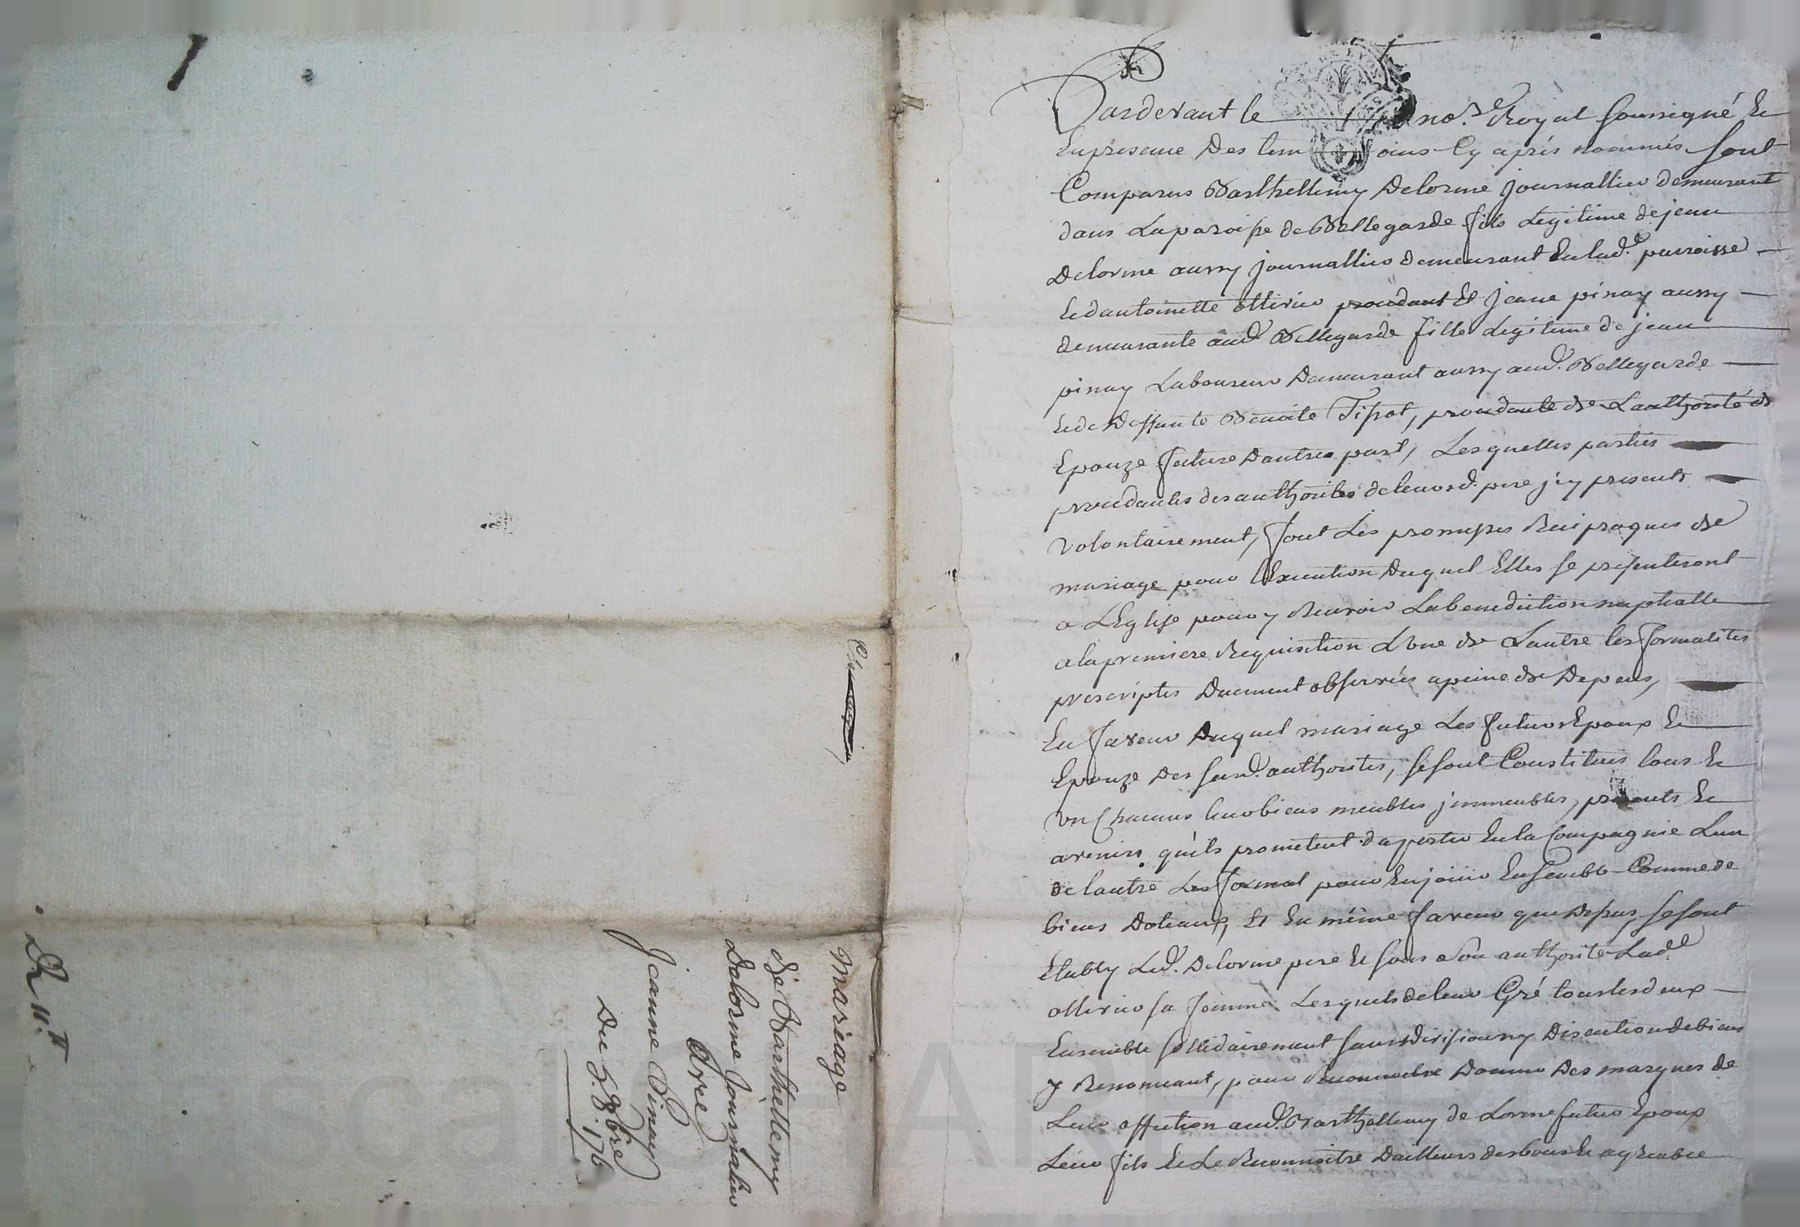 Pardevant le no.re Royal soussigné Et
En presence Des tem oins Cy après nommés sont
Comparus Barthellemy Delorme journallier demeurant
dans La paroisse de Bellegarde fils Legitime de jean
Delorme aussy journallier demeurant En lad.e parroisse
Et dantoinette ollivier procédant Et jeane pinay aussy
demeurante aud.t Bellegarde fille Legitime de jean
pinay Laboureur Demeurant aussy aud.t Bellegarde
Et de Deffunte Benoite Tissot, procedante de Lauthorité de
Epouze future Dautre part, Lesquelles parties
procedantes des authorités de leurs d. pere jcy presents
volontairement, font Les promesses Reciproques de
mariage pour l'Execution Duquel Elles se presenteront
a L'Eglise pour y Recevoir La benediction nuptialle
a la premiere Requisition L'une de L'autre les formalités
prescriptes Duement observées a peine de Depens,
En faveur Duquel mariage Les futurs Epoux Et
Epouze Des susd. authorités, se sont Constitués tous Et
un Chacuns leurs biens meubles jmmeubles, presents Et
avenirs qu'ils promettent d'aporter En la Compagnie L'un
de lautre pour En jouir Ensemble Comme de
biens Dotaux, Et En même faveur que Dessus se sont
Etably Led. Delorme pere Et sous son authorité Lad.e
ollivier sa femme Lesquels de leur Gré tous les deux
Ensemble sollidairement sans division ny Discution de biens
y Renonceant, pour Reconnoitre Donner Des marques de
Leur affection aud. Barthellemy de Lorme futur Epoux
Leur fils Et Le Reconnoitre Dailleurs des bons Et agreable
Mariage
De Barthellemy
Delorme Journalier
Avec
Jeanne Pinay
Du 5. 9bre 176